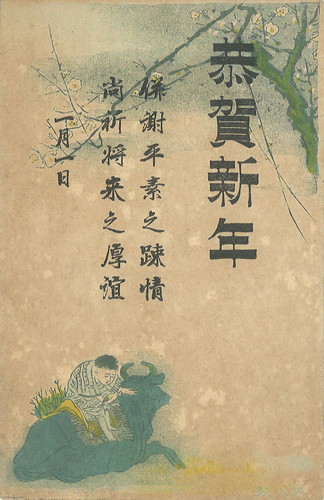 恭賀新年
併謝平素之踈情
尚祈将来之厚誼
一月一日